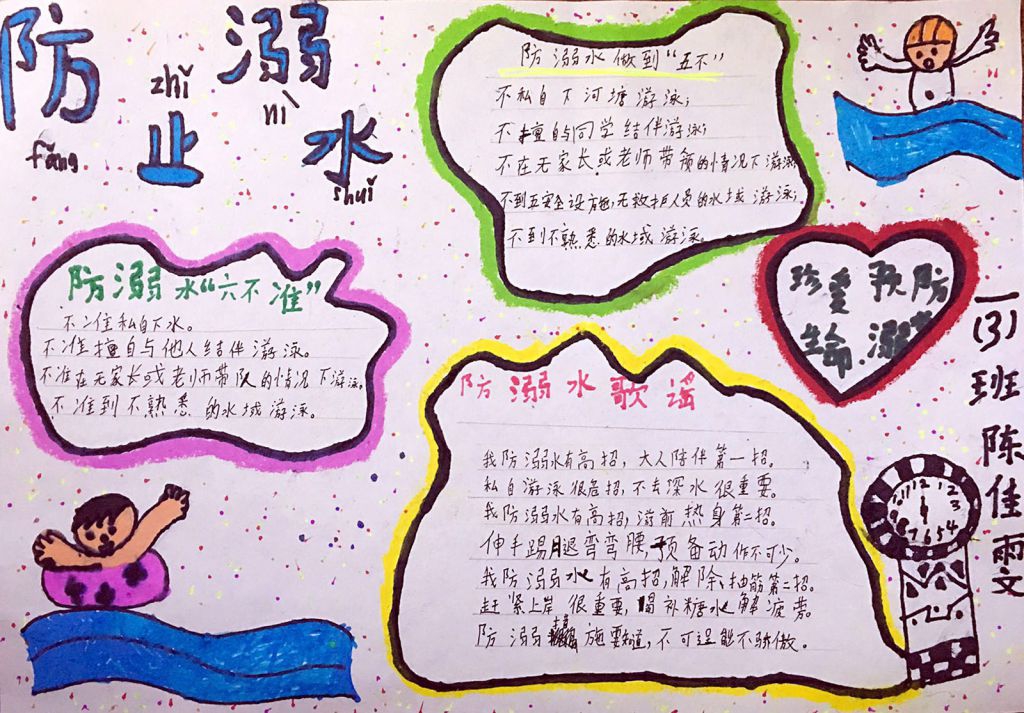 防溺止水
fǎng zhǐ nì shuǐ
防溺水做到“五不”
不私自下河塘游泳;
不擅自与同学结伴游泳;
不在无家长或老师带领的情况下游泳
不到五安全设施,无救护人员的水域游泳;
不到不熟悉的水域游泳。
防溺水“六不准”
不准私自下水。
不准擅自与他人结伴游泳。
不准在无家长或老师带队的情况下游泳。
不准到不熟悉的水域游泳。
珍爱 预防
生命.溺
一(3)班陈佳雨文
防溺水歌谣
我防溺水有高招,大人陪伴第一招。
私自游泳很危招,不去深水很重要。
我防溺水有高招,游前热身第二招。
伸手踢腿弯弯腰,预备动作不可少。
我防溺水有高招,解除抽筋第二招。
赶紧上岸很重要,喝补糖水解疲劳。
防溺 施要知道,不可逞能不骄傲。
11 12 1 2 3 4 5 6 7